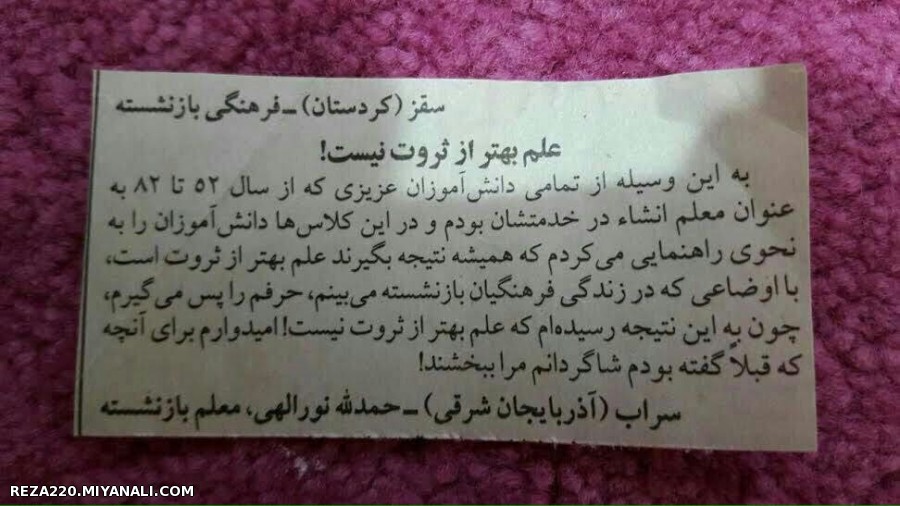 سقز (کردستان) ـ فرهنگی بازنشسته
علم بهتر از ثروت نیست!
به این وسیله از تمامی دانش‌آموزان عزیزی که از سال ۵۲ تا ۸۲ به
عنوان معلم انشاء در خدمتشان بودم و در این کلاس‌ها دانش‌آموزان را به
نحوی راهنمایی می‌کردم که همیشه نتیجه بگیرند علم بهتر از ثروت است،
با اوضاعی که در زندگی فرهنگیان بازنشسته می‌بینم، حرفم را پس می‌گیرم،
چون به این نتیجه رسیده‌ام که علم بهتر از ثروت نیست! امیدوارم برای آنچه
که قبلاً گفته بودم شاگردانم مرا ببخشند!
سراب (آذربایجان شرقی) ـ حمدلله نورالهی، معلم بازنشسته
REZA220.MIYANALI.COM